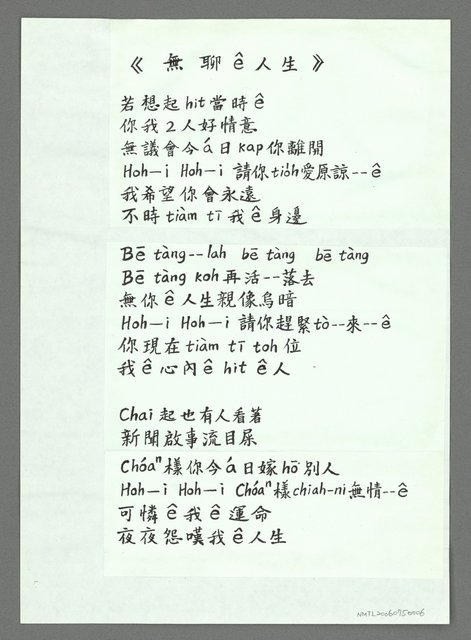 《無聊ê人生》
若想起hit當時ê
你我2人好情意
無議會今á日kap你離開
Hoh–i Hoh–i 請你tio̍h愛原諒--ê
我希望你會永遠
不時tiàm tī我ê身邊
Bē tàng--lah bē tàng bē tàng
Bē tàng koh再活--落去
無你ê人生親像烏暗
Hoh–i Hoh–i 請你趕緊tò--來--ê
你現在tiàm tī toh位
我ê心內ê hit ê人
Chai起也有人看著
新聞啟事流目屎
Chóaⁿ樣你今á日嫁hō͘別人
Hoh–i Hoh–i Chóaⁿ樣chiah-ni無情--ê
可憐ê我ê運命
夜夜怨嘆我ê人生
NMTL20060750006